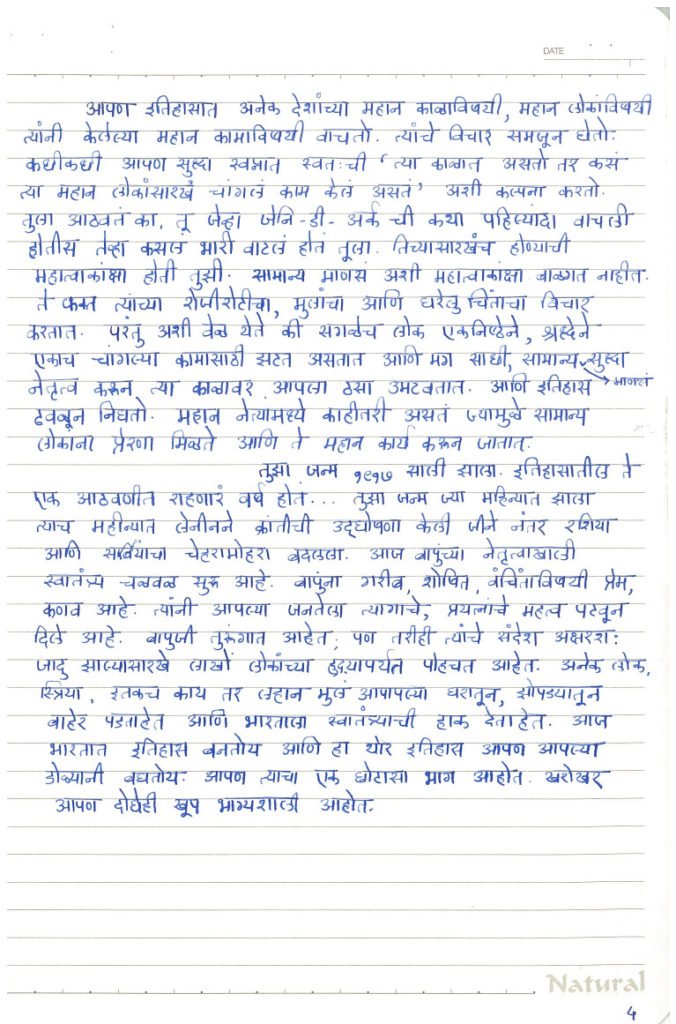 DATE
आपण इतिहासात अनेक देशांच्या महान काळाविषयी, महान लोकांविषयी
त्यांनी केलेल्या महान कामाविषयी वाचतो. त्यांचे विचार समजून घेतो.
कधीकधी आपण सुद्धा स्वप्नात स्वतःची 'त्या काळात असतो तर कसं
त्या महान लोकांसारखं चांगलं काम केलं असतं' अशी कल्पना करतो.
तुला आठवतं का, तू जेव्हा जेनि-डी-अर्क ची कथा पहिल्यांदा वाचली
होतीस तेव्हा कसलं भारी वाटलं होतं तूला. तिच्यासारखंच होण्याची
महात्वाकांक्षा होती तुझी. सामान्य माणसं अशी महात्वाकांक्षा बाळगत नाहीत.
ते फक्त त्यांच्या रोजीरोटीचा, मुलांचा आणि घरेलु चिंतांचा विचार
करतात. परंतु अशी वेळ येते की सगळेच लोक एकनिष्ठेने, श्रद्धेने
एकाच चांगल्या कामासाठी झटत असतात आणि मग साधी, सामान्य सुद्धा
माणसं
नेतृत्व करून त्या काळावर आपला ठसा उमटवतात. आणि इतिहास
ढवळून निघतो. महान नेत्यामध्ये काहीतरी असतं ज्यामुळे सामान्य
लोकांना प्रेरणा मिळते आणि ते महान कार्य करून जातात.
तुझा जन्म १९१७ साली झाला. इतिहासातील ते
एक आठवणीत राहणारं वर्ष होतं... तुझा जन्म ज्या महिन्यात झाला
त्याच महीन्यात लेनीनने क्रांतीची उद्घोषणा केली जीने नंतर रशिया
आणि सर्बियाचा चेहरामोहरा बदलला. आज बापुंच्या नेतृत्वाखाली
स्वातंत्र्य चळवळ सुरू आहे. बापुंना गरीब, शोषित, वंचितांविषयी प्रेम,
कणव आहे. त्यांनी आपल्या जनतेला त्यागाचे, प्रयत्नांचे महत्व पटवून
दिले आहे. बापुजी तुरूंगात आहेत, पण तरीही त्यांचे संदेश अक्षरशः
जादु झाल्यासारखे लाखो लोकांच्या हृदयापर्यंत पोहचत आहेत. अनेक लोक,
स्त्रिया, इतकचं काय तर लहान मुलं आपापल्या घरातून, झोपड्यातून
बाहेर पडताहेत आणि भारताला स्वातंत्र्याची हाक देताहेत. आज
भारतात इतिहास बनतोय आणि हा थोर इतिहास आपण आपल्या
डोळ्यांनी बघतोय. आपण त्याचा एक छोटासा भाग आहोत. खरोखर
आपण दोघेही खूप भाग्यशाली आहोत.
Natural
4